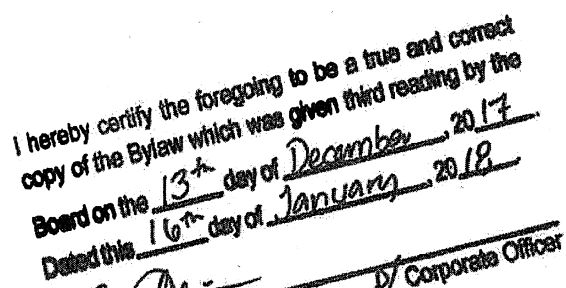 I hereby certify the foregoing to be a true and correct
copy of the Bylaw which was given third reading by the
Board on the 13th day of December, 2017.
Dated this 16th day of January, 2018.
D/ Corporate Officer